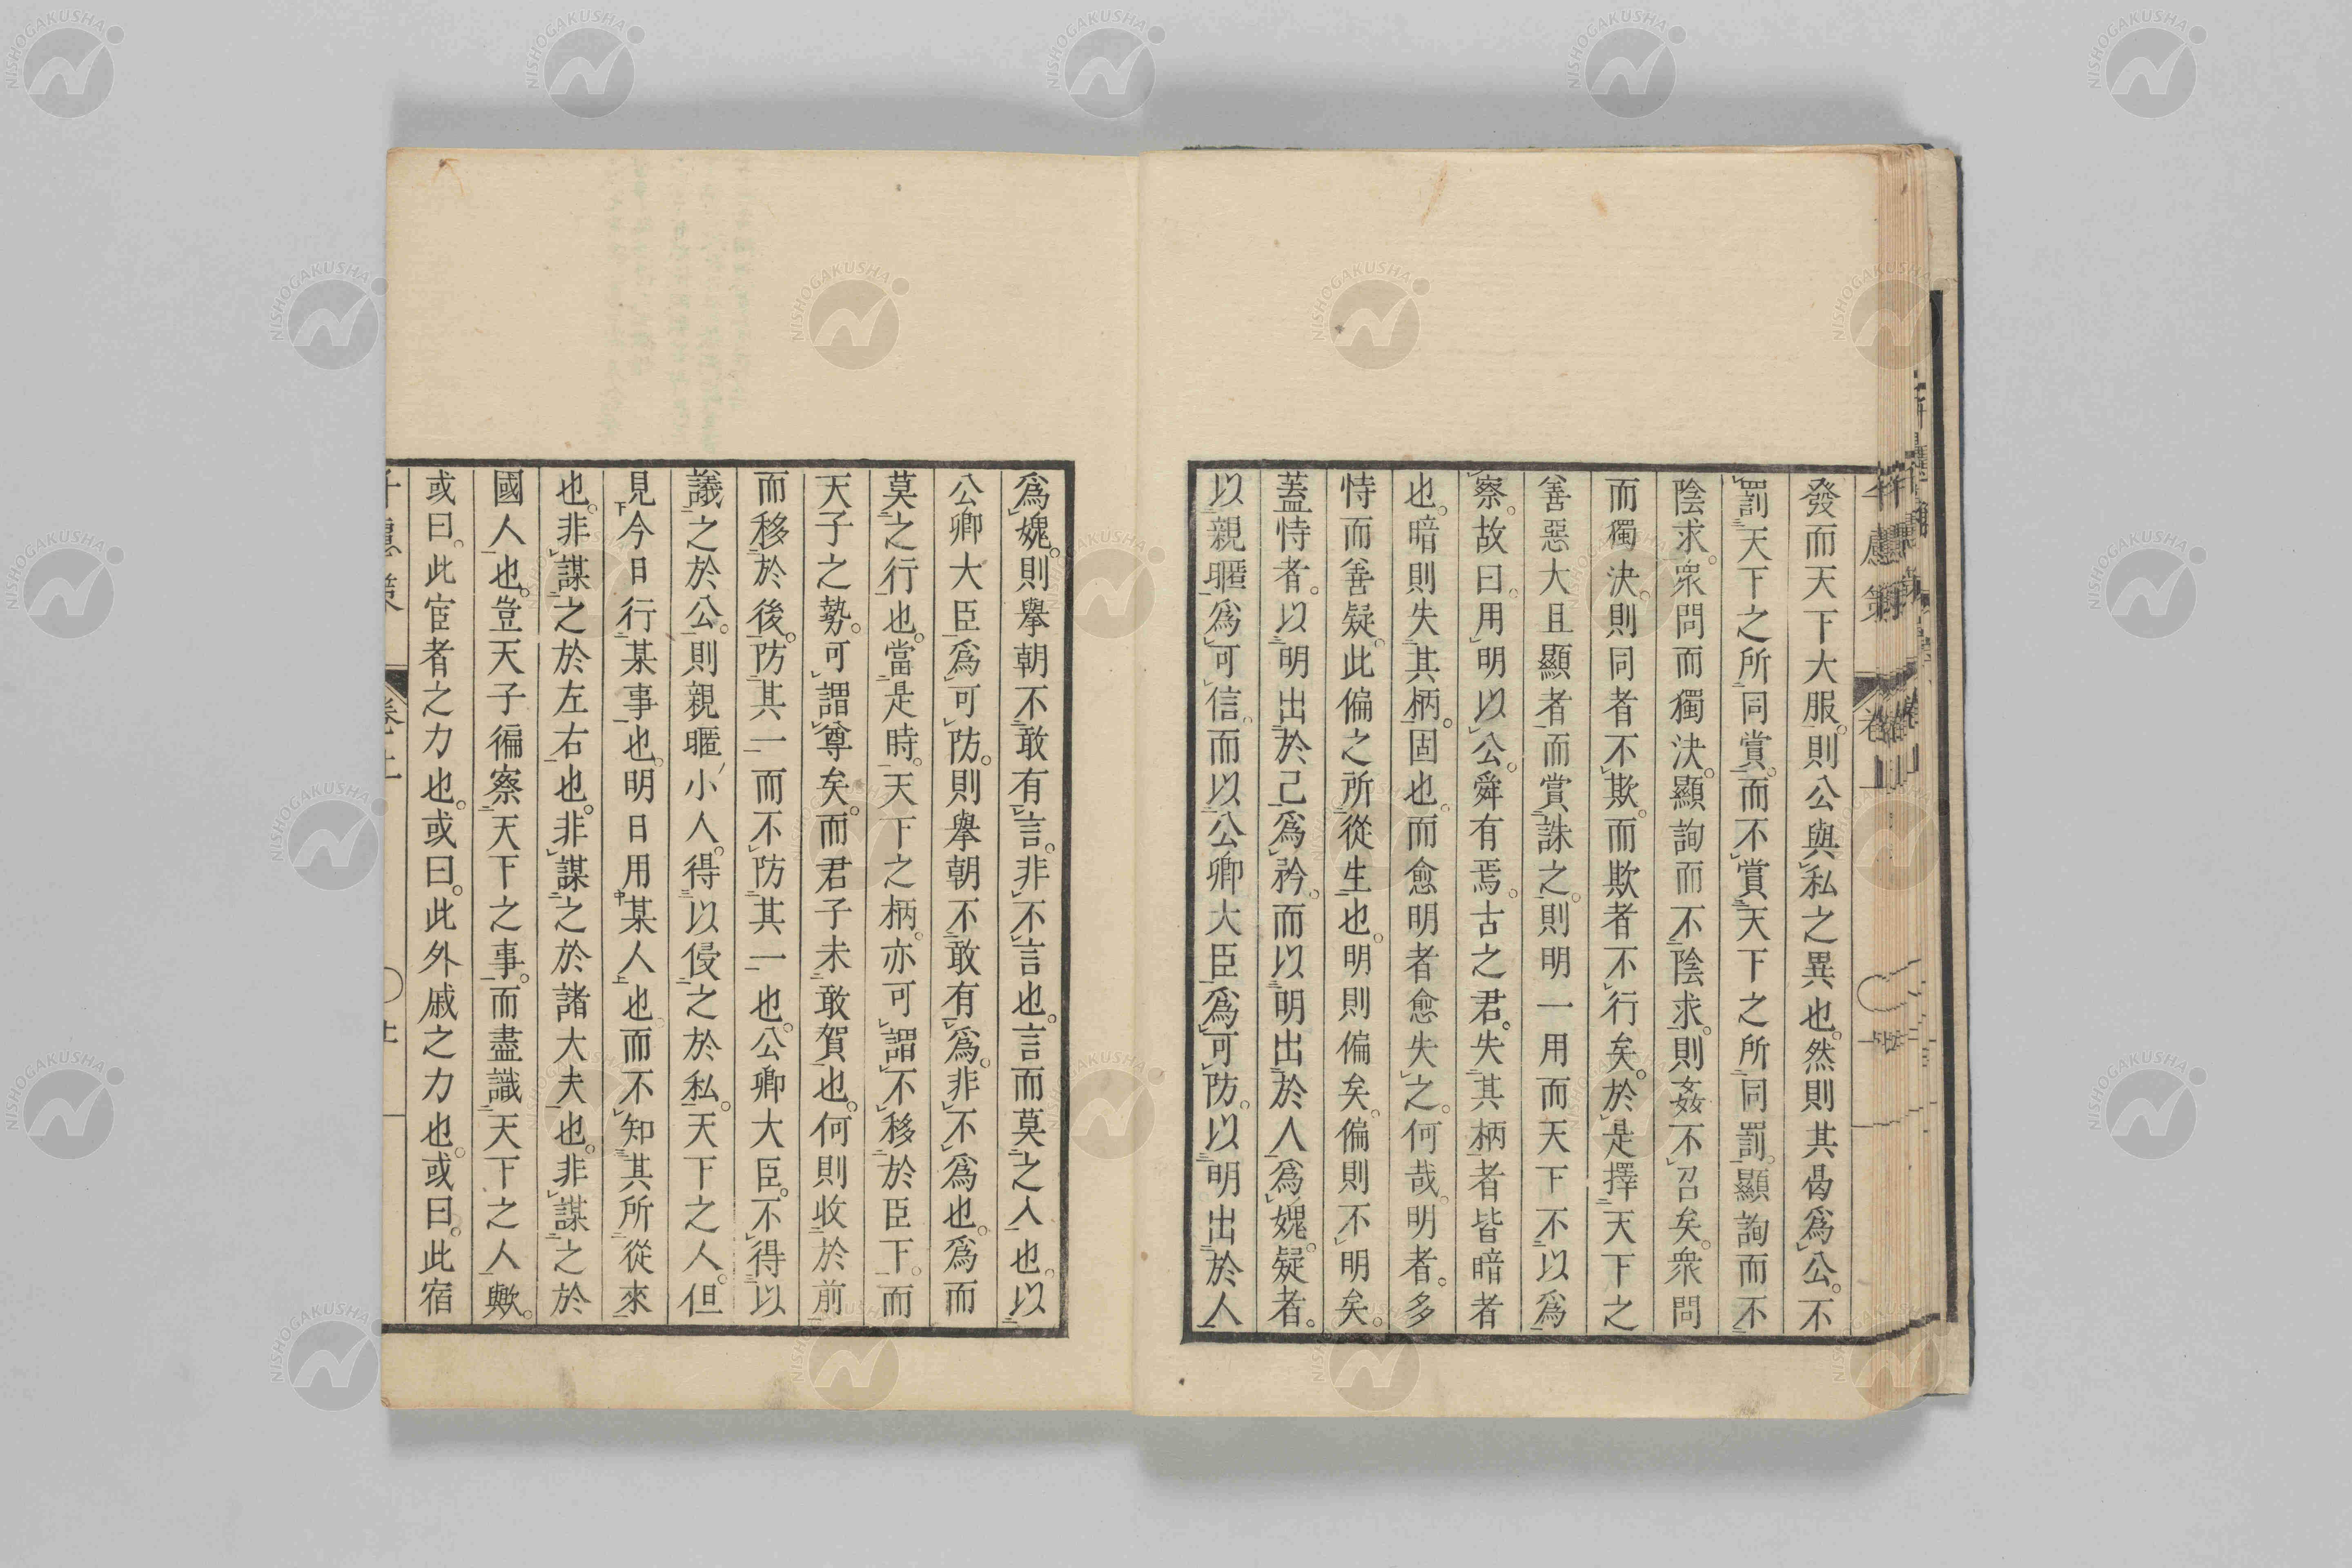 發而天下大服。則公與私之異也。然則其曷爲公。不
罰天下之所同賞。而不賞天下之所同罰。顯詢而不
陰求。衆問而獨決。顯詢而不陰求。則姦不召矣。衆問
而獨決。則同者不欺。而欺者不行矣。於是擇天下之
善惡大且顯者。而賞誅之。則明一用而天下不以爲
察。故曰。用明以公。舜有焉。古之君。失其柄者皆暗者
也。暗則失其柄。固也。而愈明者愈失之。何哉。明者。多
恃而善疑。此偏之所從生也。明則偏矣。偏則不明矣。
蓋恃者。以明出於己爲矜。而以明出於人爲媿。疑者。
以親暱爲可信。而以公卿大臣爲可防。以明出於人
爲媿。則擧朝不敢有言。非不言也。言而莫之入也。以
公卿大臣爲可防。則擧朝不敢有爲。非不爲也。爲而
莫之行也。當是時。天下之柄。亦可謂不移於臣下。而
天子之勢。可謂尊矣。而君子未敢賀也。何則收於前
而移於後。防其一而不防其一也。公卿大臣。不得以
議之於公。則親暱小人。得以侵之於私。天下之人。但
見今日行某事也。明日用某人也。而不知其所從來
也。非謀之於左右也。非謀之於諸大夫也。非謀之於
國人也。豈天子徧察天下之事。而盡識天下之人歟。
或曰。此宦者之力也。或曰。此外戚之力也。或曰。此宿